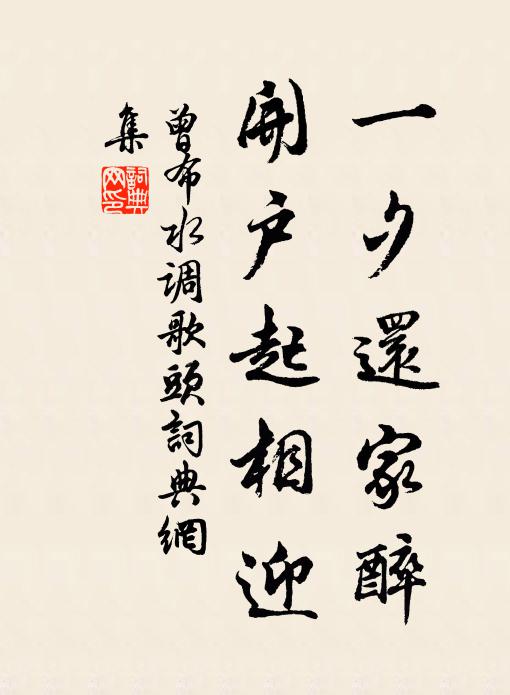 一夕還家醉
開户起相迎
曾布水调歌頭詞典網
集
詞典
网印